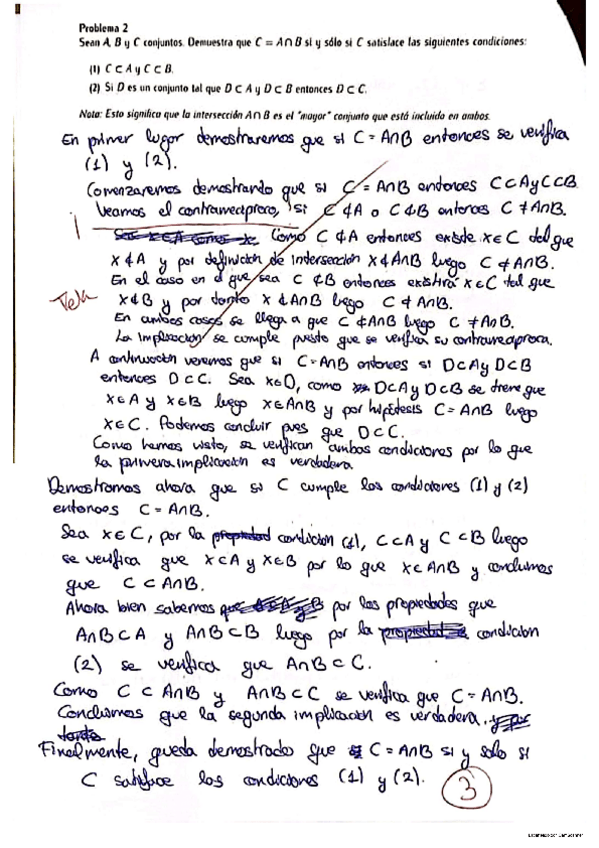 Problema 2
Sean A, B y C conjuntos. Demuestra que C = A∩B si y sólo si C satisface las siguientes condiciones:
(1) C ⊂ A y C ⊂ B.
(2) Si D es un conjunto tal que D ⊂ A y D ⊂ B entonces D ⊂ C.
Nota: Esto significa que la intersección A∩B es el "mayor" conjunto que está incluido en ambos.
En primer lugar demostraremos que si C = A∩B entonces se verifica
(1) y (2).
Comenzaremos demostrando que si C = A∩B entonces C⊂A y C⊂B.
Veamos el contrarrecíproco, si C ⊄ A o C ⊄ B entonces C ≠ A∩B.
Como C ⊄ A entonces existe x∈C tal que
x ∉ A y por definición de intersección x ∉ A∩B luego C ≠ A∩B.
En el caso en el que sea C ⊄ B entonces existirá x∈C tal que
x ∉ B y por tanto x ∉ A∩B luego C ≠ A∩B.
En ambos casos se llega a que C ⊄ A∩B luego C ≠ A∩B.
La implicación se cumple puesto que se verifica su contrarrecíproca.
A continuación veremos que si C = A∩B entonces si D⊂A y D⊂B
entonces D ⊂ C. Sea x∈D, como D⊂A y D⊂B se tiene que
x∈A y x∈B luego x∈A∩B y por hipótesis C = A∩B luego
x∈C. Podemos concluir pues que D⊂C.
Como hemos visto, se verifican ambas condiciones por lo que
la primera implicación es verdadera.
Demostramos ahora que si C cumple las condiciones (1) y (2)
entonces C = A∩B.
Sea x∈C, por la condición (1), C⊂A y C⊂B luego
se verifica que x∈A y x∈B por lo que x∈A∩B y concluimos
que C ⊂ A∩B.
Ahora bien sabemos por las propiedades que
A∩B⊂A y A∩B⊂B luego por la condición
(2) se verifica que A∩B ⊂ C.
Como C ⊂ A∩B y A∩B ⊂ C se verifica que C = A∩B.
Concluimos que la segunda implicación es verdadera.
Finalmente, queda demostrado que C = A∩B si y solo si
C satisface las condiciones (1) y (2).
3